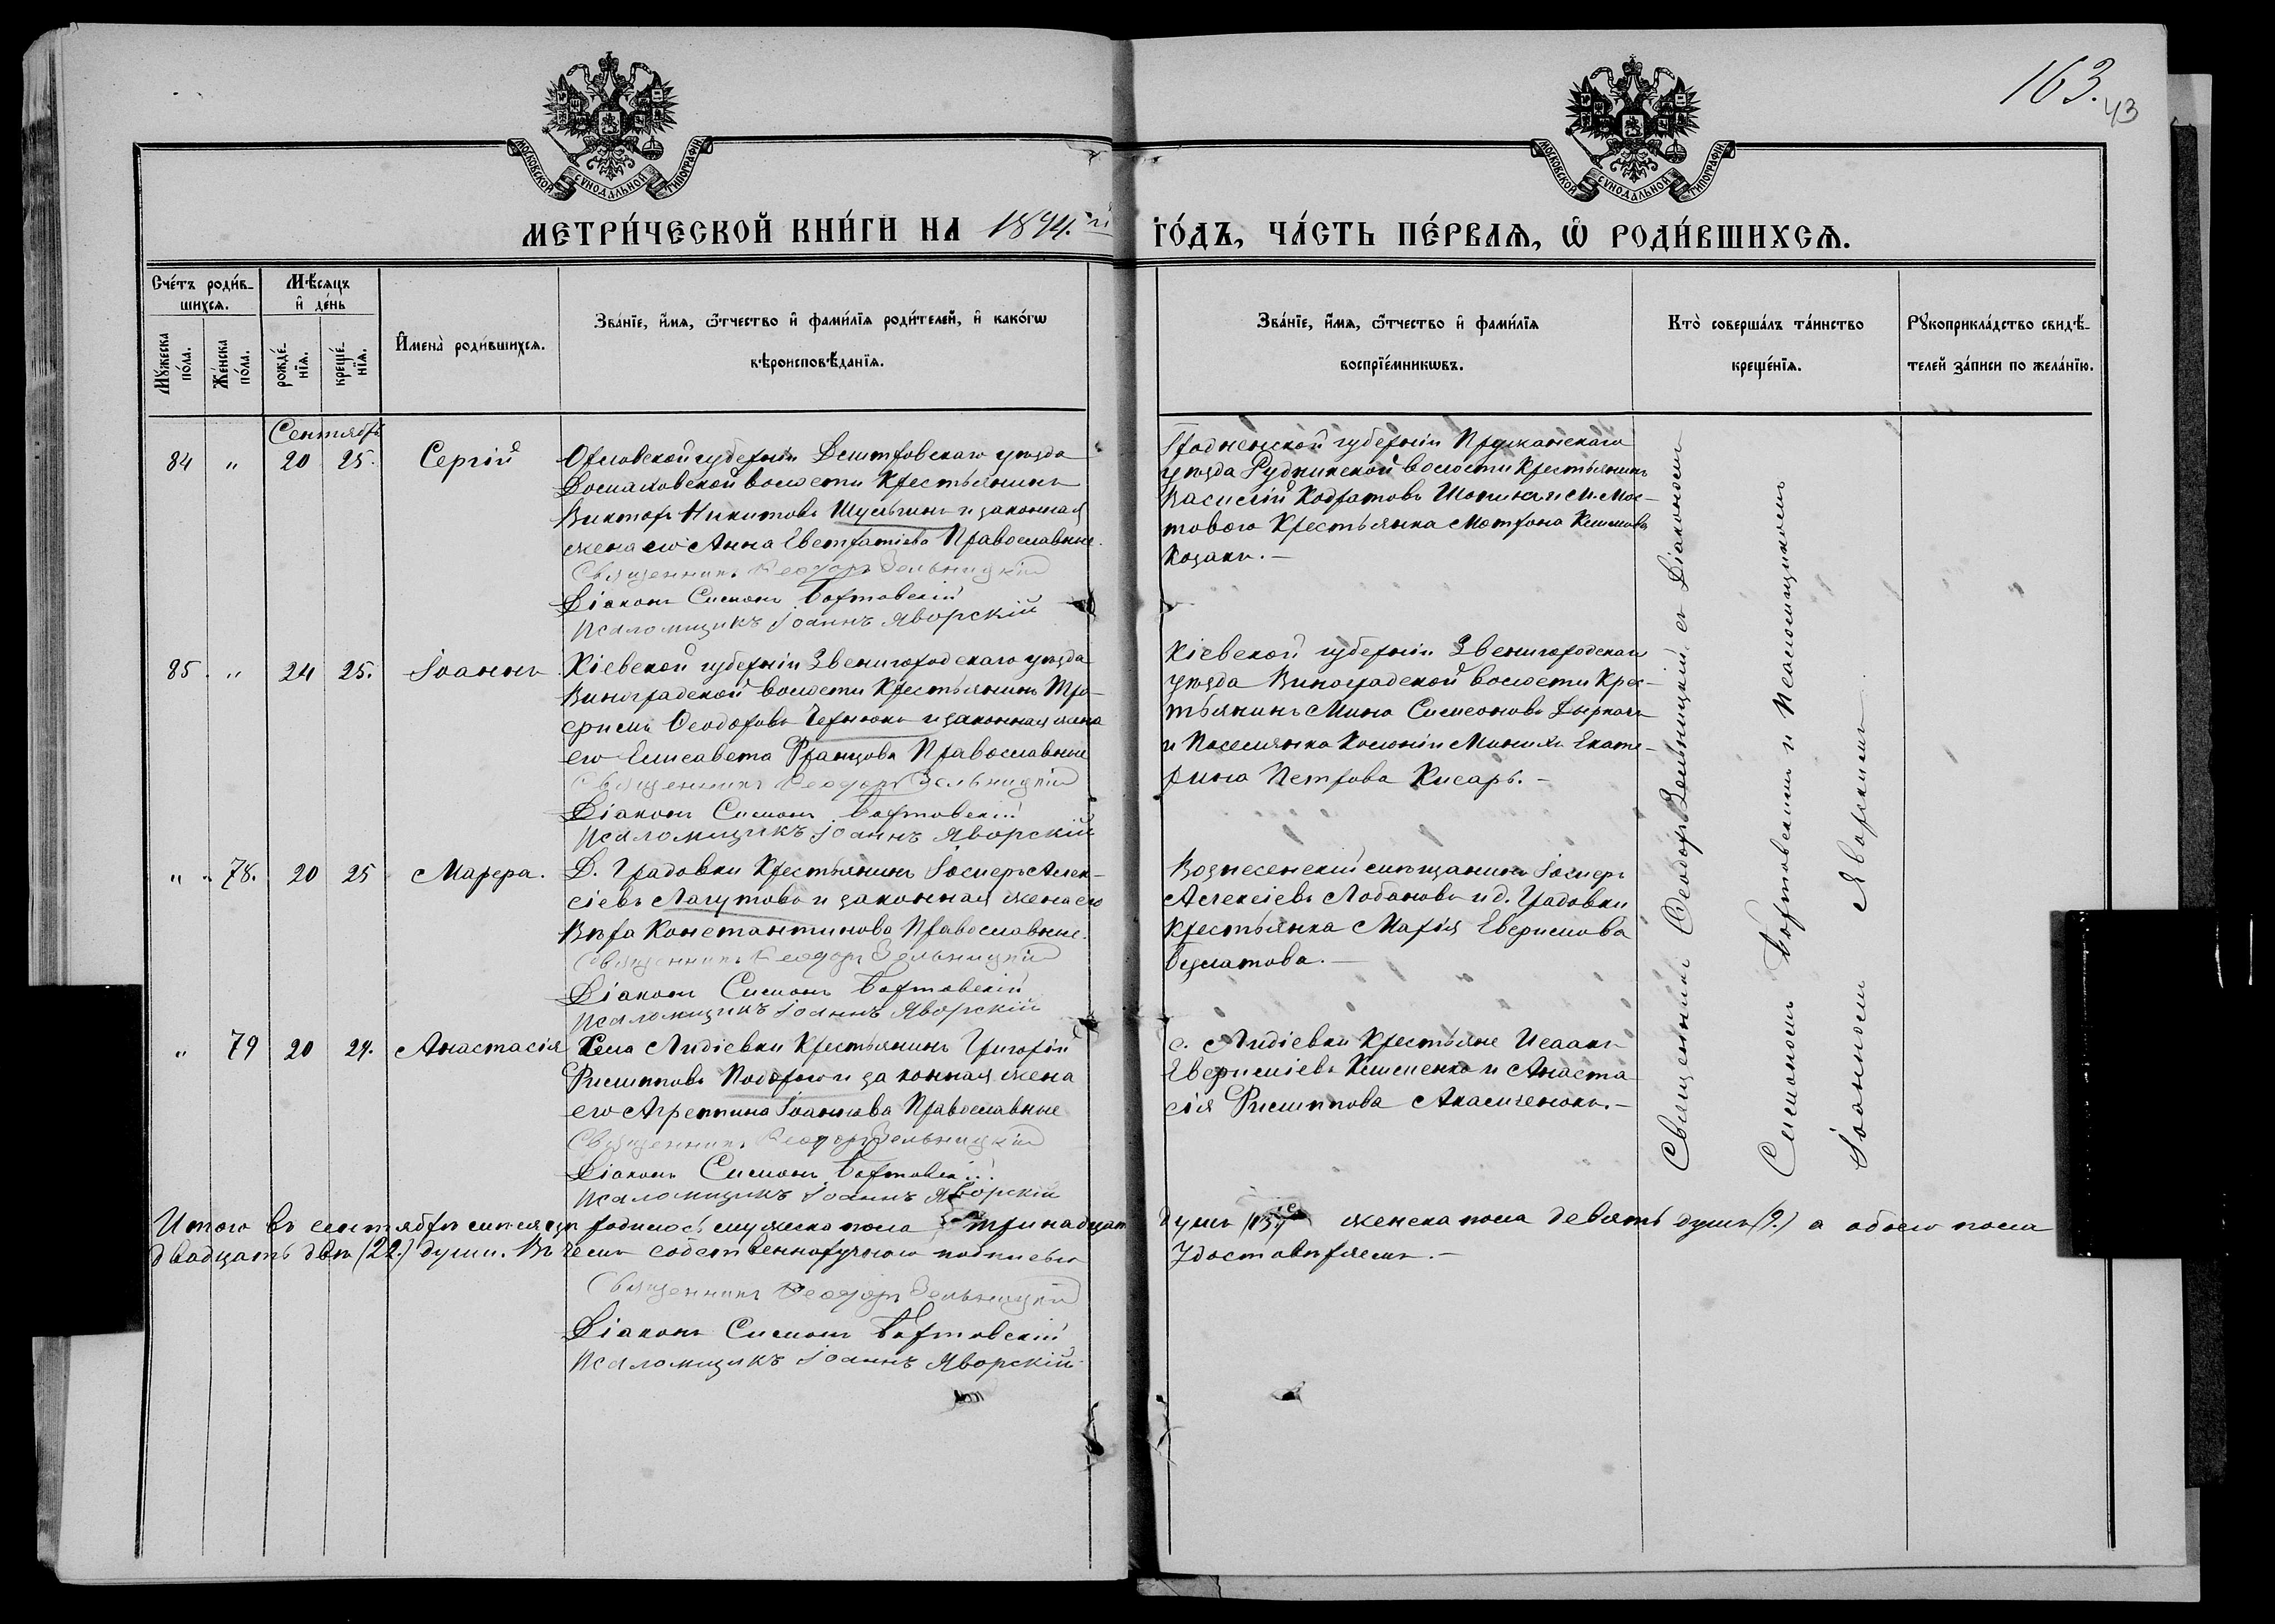 163.
43
МОСКОВСКОЙ СѴНОДАЛЬНОЙ ТИПОГРАФІИ
МОСКОВСКОЙ СѴНОДАЛЬНОЙ ТИПОГРАФІИ
МЕТРИ́ЧЕСКОЙ КНИ́ГИ НА 1894.й ГО́ДЪ, ЧА́СТЬ ПЕ́РВАѦ, Ѡ҆ РОДИ́ВШИХСѦ.
Сче́тъ роди́в-
шихсѧ.
Мꙋ́жеска по́ла.
Же́нска по́ла.
Мѣ́сѧцъ
и҆ де́нь
рожде́-нїѧ.
креще́-нїѧ.
И҆мена̀ роди́вшихсѧ.
Зва́нїе, и҆́мѧ, ѻ҆́тчество и҆ фами́лїѧ роди́телей, и҆ како́гѡ
вѣроисповѣ́данїѧ.
Зва́нїе, и҆́мѧ, ѻ҆́тчество и҆ фами́лїѧ
воспрїе́мникѡвъ.
Кто̀ соверша́лъ та́инство
креще́нїѧ.
Рꙋкоприкла́дство свидѣ́-
телей за́писи по жела́нїю.
Сентябрь
84 " 20 25. Сергій
Орловской губерніи Дмитровскаго уѣзда
Домаховской волости Крестьянинъ
Викторъ Никитовъ Шульгинъ и законная
жена его Анна Евстратіева Православные.
Священникъ Ѳеодоръ Зельницкій
Діаконъ Симонъ Бортовскій
Псаломщикъ Іоаннъ Яворскій
Гродненской губерніи Пружанскаго
уѣзда Рудникской волости Крестьянинъ
Василій Кодратовъ и м. Мос-
товаго Крестьянка Матрона
Козакъ.—
85. " 24 25. Іоаннъ
Кіевской губерніи Звенигородскаго уѣзда
Виноградской волости Крестьянинъ Тро-
фимъ Ѳеодоровъ Чернюкъ и законная жена
его Елисавета Францова Православные
Священникъ Ѳеодоръ Зельницкій
Діаконъ Симонъ Бортовскій
Псаломщикъ Іоаннъ Яворскій
Кіевской губерніи Звенигородскаго
уѣзда Виноградской волости Крес-
тьянинъ Мина Симеоновъ
и Поселянка Колоніи Екате-
рина Петрова Кисаръ.—
" 78. 20 25 Марѳа.
Д. Градовки Крестьянинъ Іосифъ Алек-
сіевъ Лагутовъ и законная жена его
Вѣра Константинова Православные.
Священникъ Ѳеодоръ Зельницкій
Діаконъ Симонъ Бортовскій
Псаломщикъ Іоаннъ Яворскій
Вознесенскій мѣщанинъ Іосифъ
Алексіевъ Лобановъ и д. Градовки
Крестьянка Марія Евфимова
—
" 79 20 24. Анастасія
Села Лидіевки Крестьянинъ Григорій
Филипповъ и законная жена
его Агреппина Іоаннова Православные
Священникъ Ѳеодоръ Зельницкій
Діаконъ Симонъ Бортовскій
Псаломщикъ Іоаннъ Яворскій
с. Лидіевки Крестьяне Исаакъ
Евфиміевъ Клименко и Анаста-
сія Филиппова —
Священникъ Ѳеодоръ Зельницкій съ Діакономъ
Симономъ Бортовскимъ и Псаломщикомъ
Іоанномъ Яворскимъ.
Итого въ сентябрѣ мѣсяцѣ родилось мужеска пола тринадцать душъ (13) женска пола девять душъ (9.) а обоего пола
двадцать двѣ (22.) души. Въ чемъ собственноручною подписью удостовѣряемъ.—
Священникъ Ѳеодоръ Зельницкій
Діаконъ Симонъ Бортовскій
Псаломщикъ Іоаннъ Яворскій